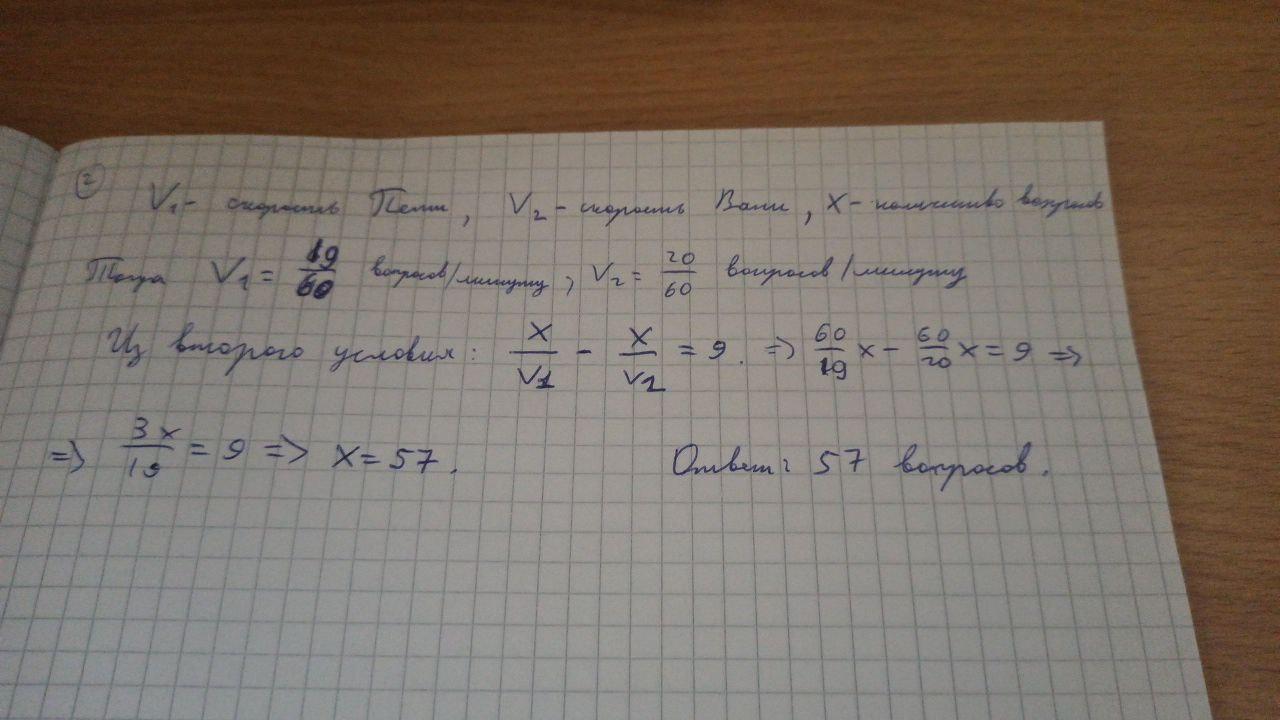 ②
V₁ - скорость Пети, V₂ - скорость Вани, x - количество вопросов
Тогда V₁ = 19/60 вопросов/минуту, V₂ = 20/60 вопросов/минуту
Из второго условия: x/V1 - x/V2 = 9. => 60/19 x - 60/20 x = 9 =>
=> 3x/19 = 9 => x = 57.
Ответ: 57 вопросов.